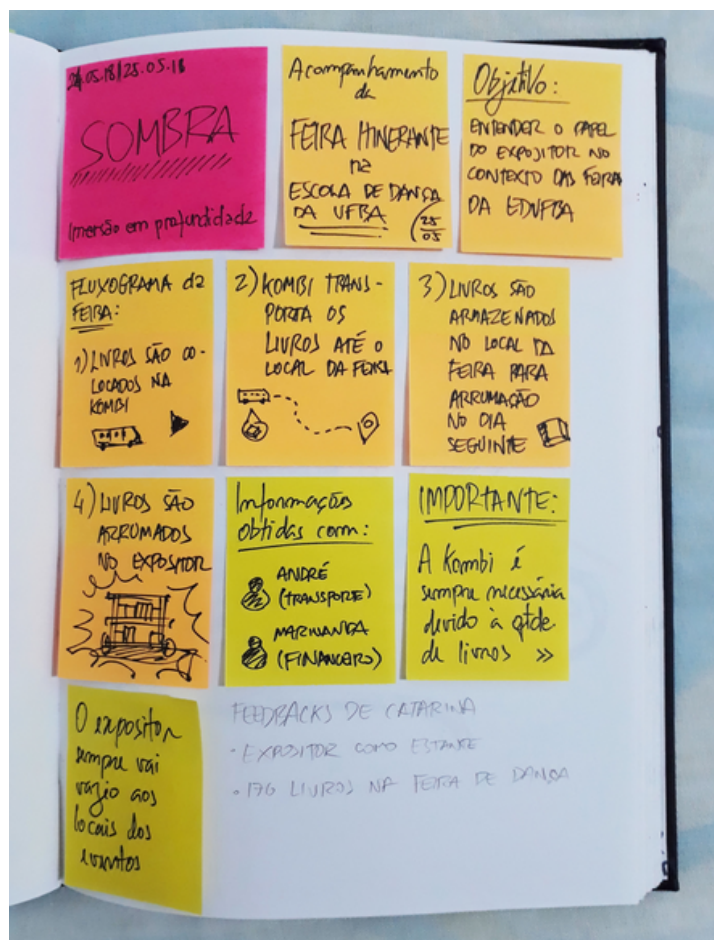 24.05.18/25.05.18
SOMBRA
Imersão em profundidade
Acompanhamento
da
FEIRA ITINERANTE
na
ESCOLA DE DANÇA
DA UFBA
25
05
Objetivo:
ENTENDER O PAPEL
DO EXPOSITOR NO
CONTEXTO DAS FEIRA
DA EDUFBA
FLUXOGRAMA da
FEIRA:
1) LIVROS SÃO CO-
LOCADOS NA
KOMBI
2) KOMBI TRANS-
PORTA OS
LIVROS ATÉ O
LOCAL DA FEIRA
3) LIVROS SÃO
ARMAZENADOS
NO LOCAL DA
FEIRA PARA
ARRUMAÇÃO
NO DIA
SEGUINTE
4) LIVROS SÃO
ARRUMADOS
NO EXPOSITOR
Informações
obtidas com:
ANDRÉ
(TRANSPORTE)
(FINANCEIRO)
IMPORTANTE:
A Kombi é
sempre necessária
devido à qtde
de livros >>
O expositor
sempre vai
vazio aos
locais dos
eventos
FEEDBACKS DE CATARINA
• EXPOSITOR COMO ESTANTE
• 176 LIVROS NA FEIRA DE DANÇA